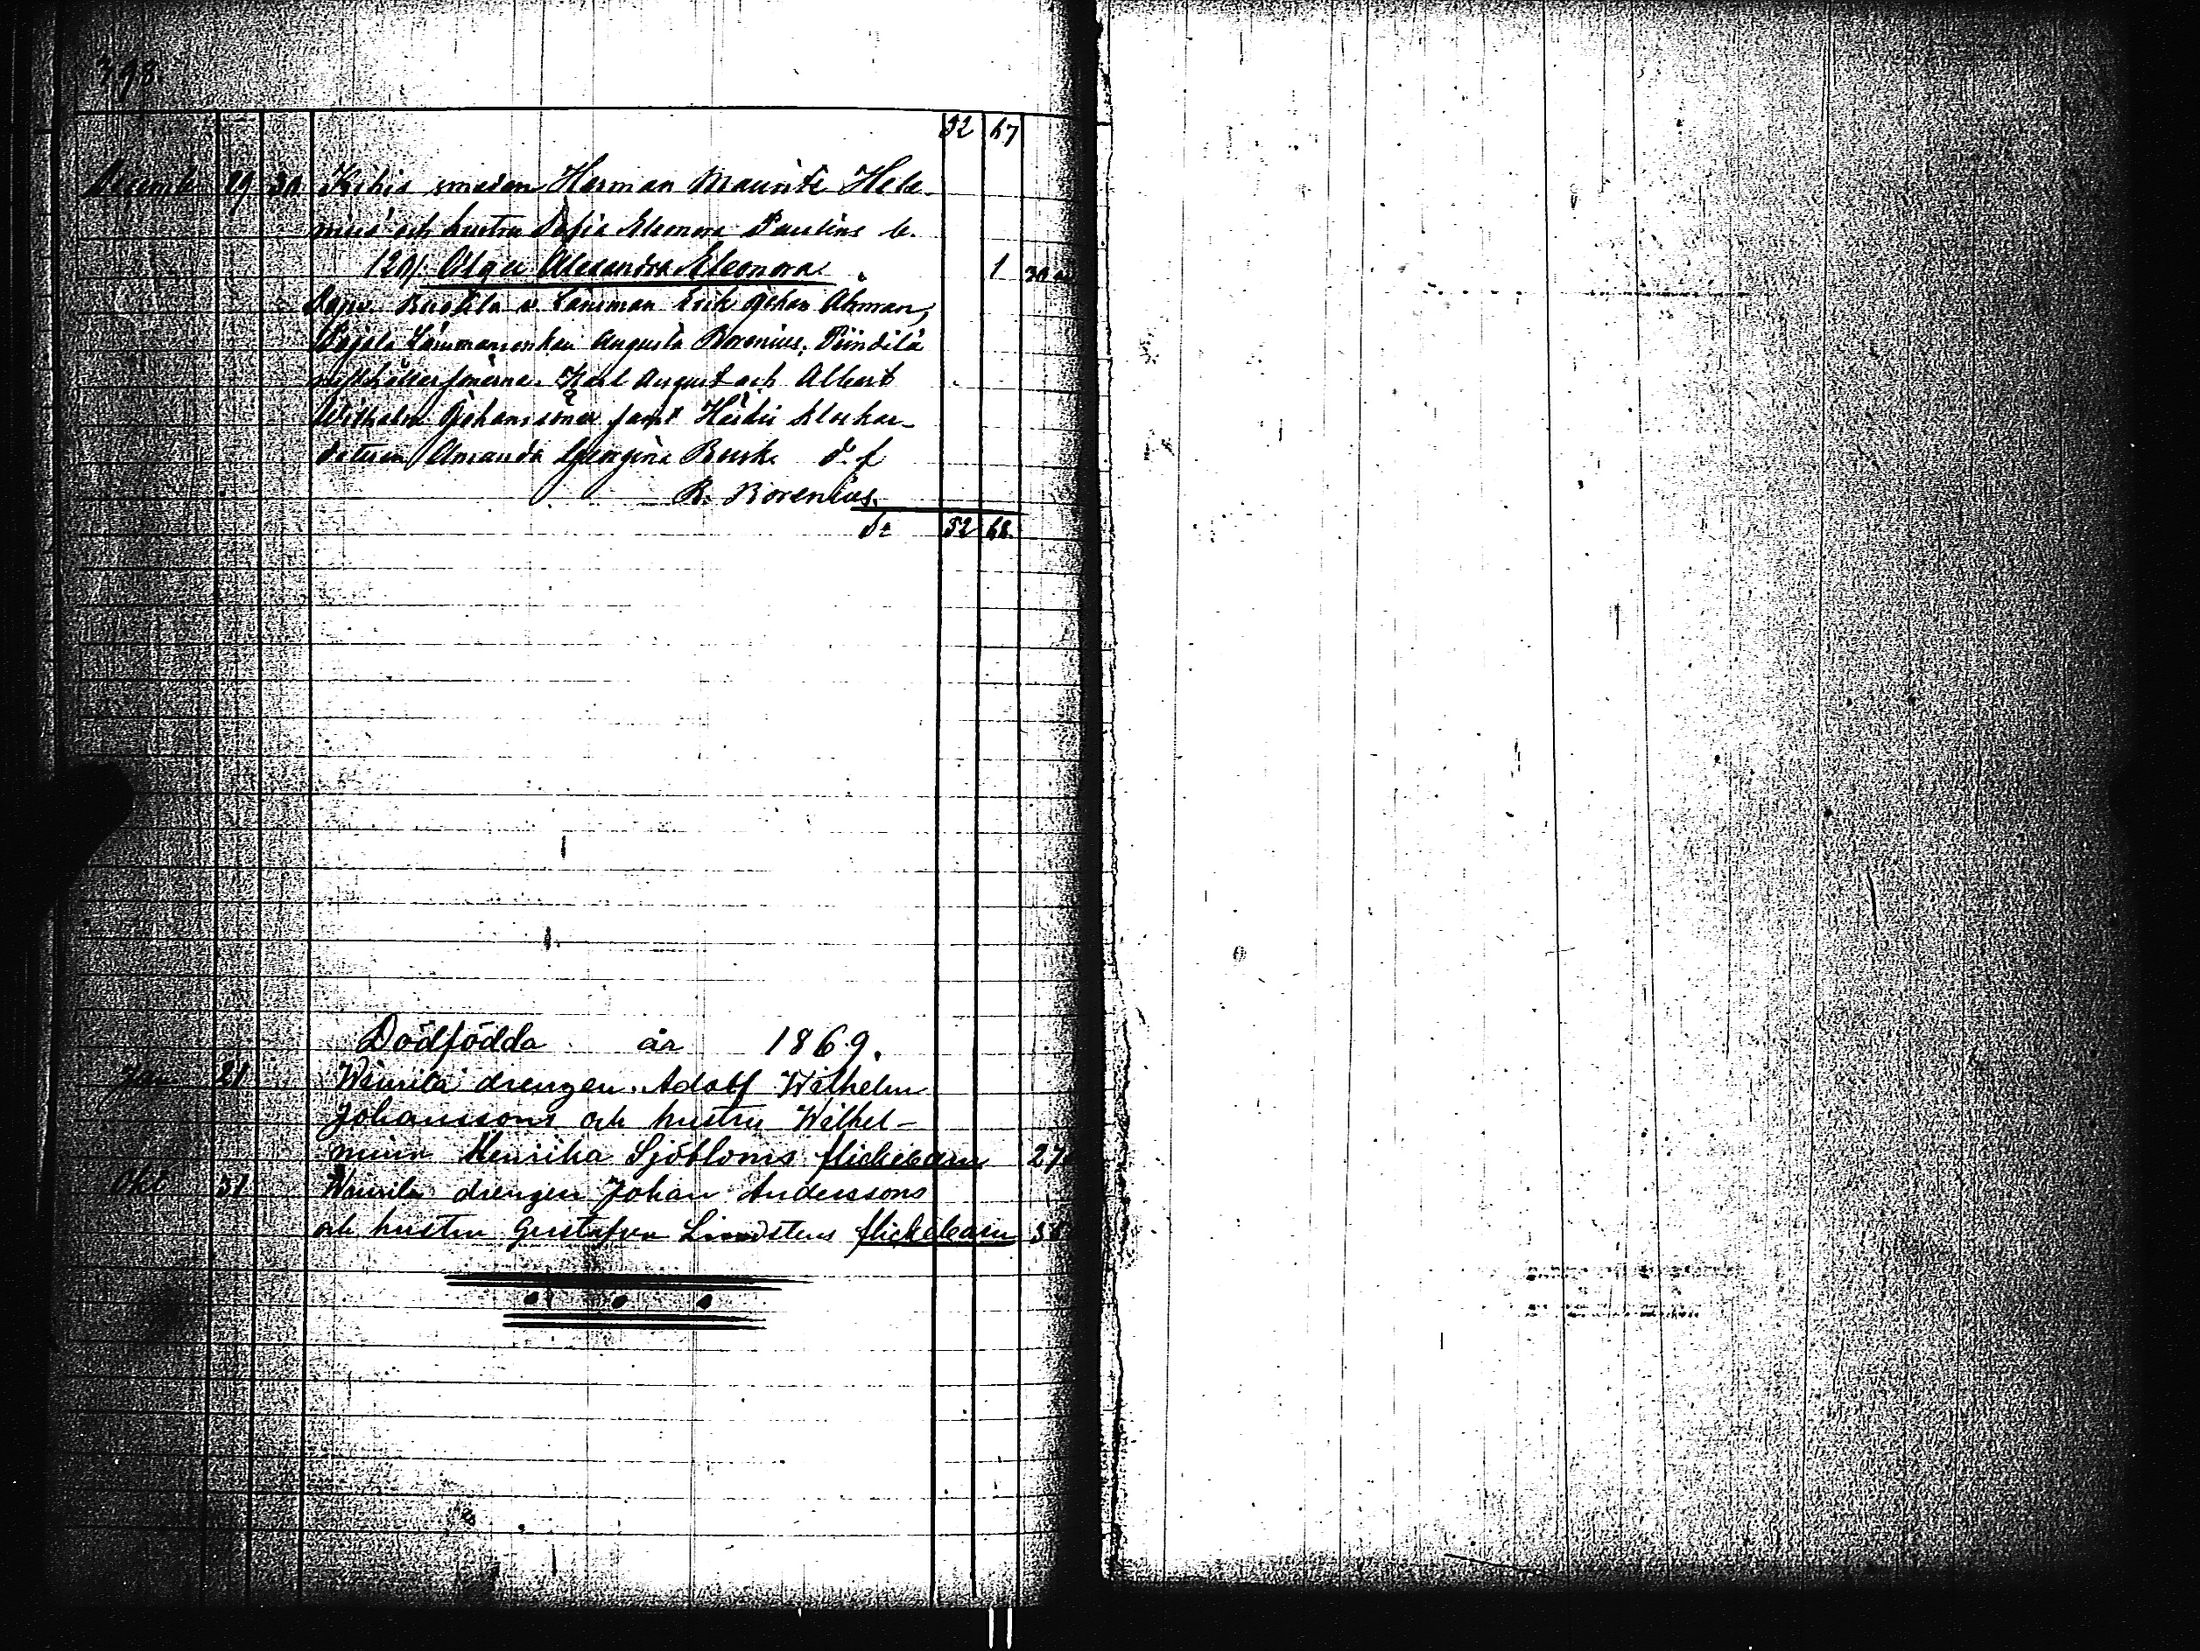 398.
52 67
Decemb. 29 30 Kihis smeden Herman Maurits Hele-
nius och hustru Sofia Eleonora Paulins b.
120/. Olga Alexandra Eleonora. 1 30 a
Länsman Erik Johan Ahman,
Länsmansenkan Augusta Borenius, Piindilä
Karl August och Albert
Wilhelm Johanssöner samt Heikis klockar-
dottern Amanda Georgina Busk. d. f
B. Borenius.
S:a 52 68.
Dödfödda år 1869.
Jan 21 Weivilä drengen Adolf Wilhelm
Johanssons och hustru Wilhel-
mina Henrika Sjöbloms flickebarn 27
Okt 31 drengen Johan Anderssons
och hustru Gustafva Lindstens flickebarn